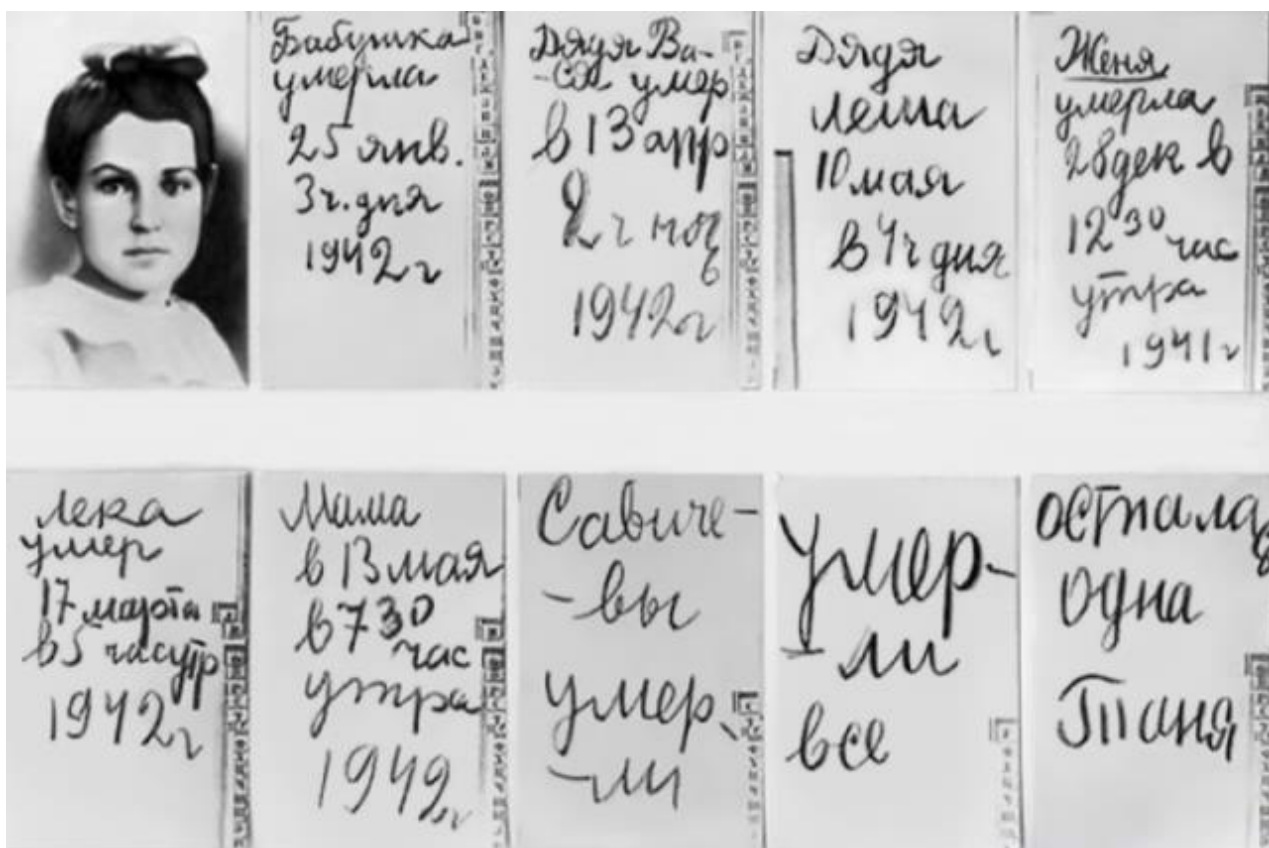 Бабушка
умерла
25 янв.
3ч. дня
1942 г
Дядя Ва-
-ся умер
в 13 апр
2 ч ноч
ь
1942 г
Дядя
Леша
10 мая
в 4ч дня
1942 г
Женя
умерла
28 дек в
12 30 час
утра
1941 г
Лека
умер
17 марта
в 5 час утр
1942 г
Мама
в 13 мая
в 7 30
час
утра
1942 г
Савиче-
-вы
умер
-ли
Умер-
-ли
все
Осталась
одна
Таня